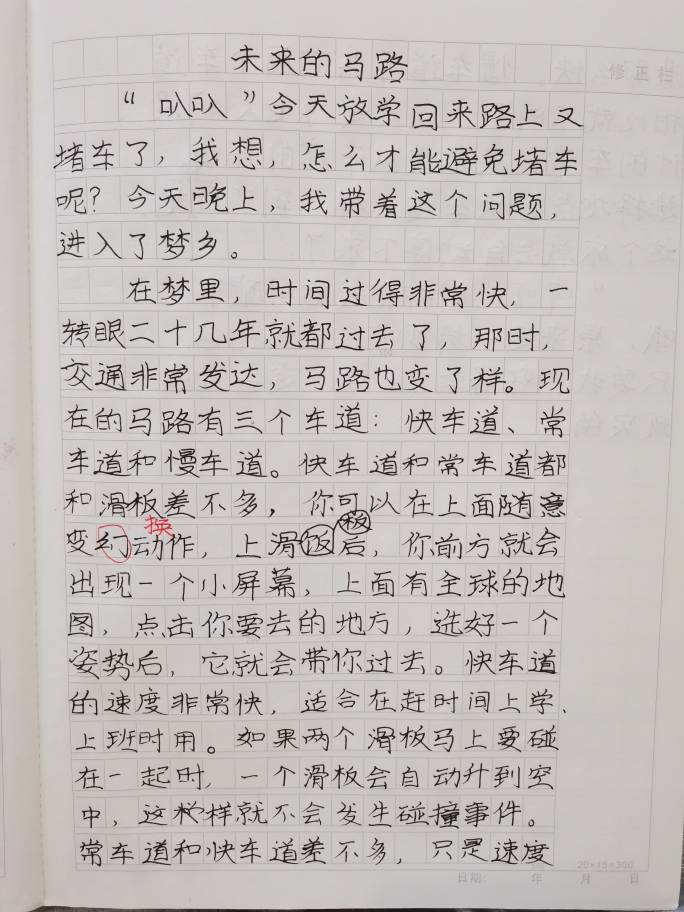 未来的马路
修正栏
“叭叭”今天放学回来路上又
堵车了，我想，怎么才能避免堵车
呢？今天晚上，我带着这个问题，
进入了梦乡。
在梦里，时间过得非常快，一
转眼二十几年就都过去了，那时，
交通非常发达，马路也变了样。现
在的马路有三个车道：快车道、常
车道和慢车道。快车道和常车道都
和滑板差不多，你可以在上面随意
换
板
变幻动作，上滑饭后，你前方就会
出现一个小屏幕，上面有全球的地
图，点击你要去的地方，选好一个
姿势后，它就会带你过去。快车道
的速度非常快，适合在赶时间上学、
上班时用。如果两个滑板马上要碰
在一起时，一个滑板会自动升到空
中，这样就不会发生碰撞事件。
常车道和快车道差不多，只是速度
20×15=300
日期： 年 月 日